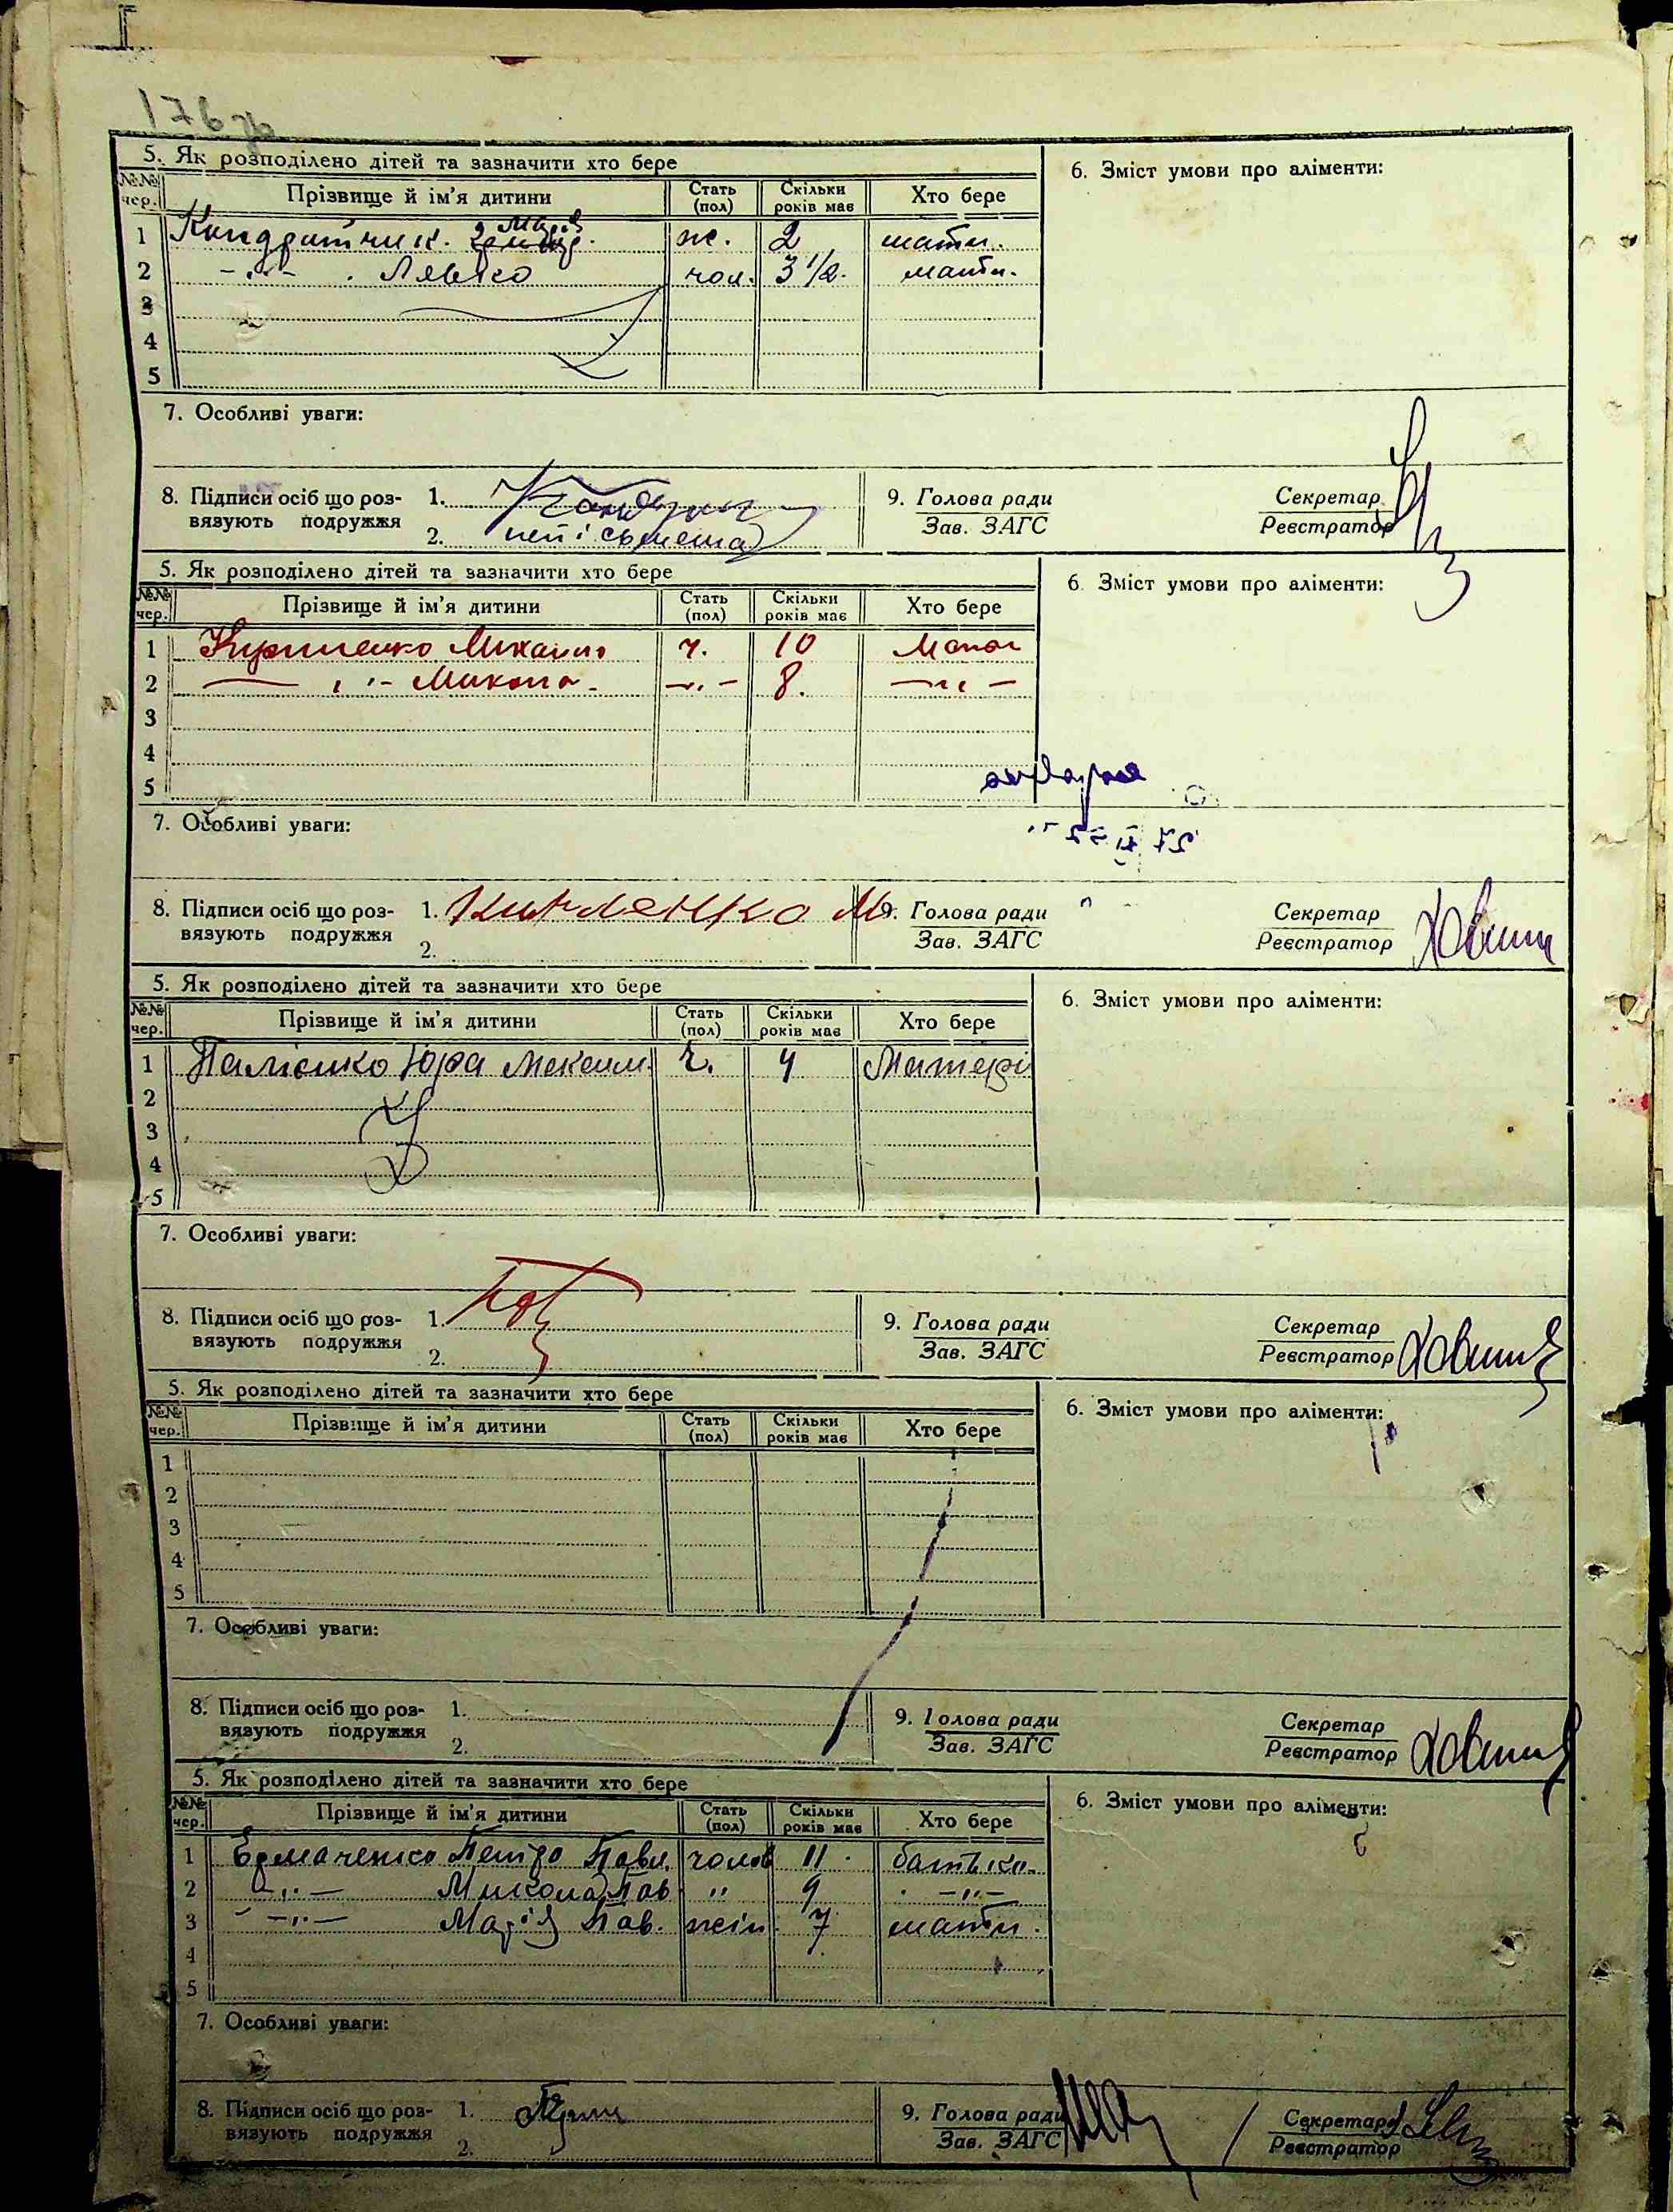 176
5. Як розподілено дітей та зазначити хто бере
6. Зміст умови про аліменти:
№№ чер. Прізвище й ім'я дитини Стать (пол) Скільки років має Хто бере
1 Кондратчик Марія ж. 2 мати.
2 -"- Левко чол. 3 1/2. мати.
3
4
5
7. Особливі уваги:
8. Підписи осіб що розвязують подружжя 1.
2. неписьмена
9. Голова ради Зав. ЗАГС Секретар Реєстратор
5. Як розподілено дітей та зазначити хто бере
6. Зміст умови про аліменти:
№№ чер. Прізвище й ім'я дитини Стать (пол) Скільки років має Хто бере
1 Михайло ч. 10
2 -"- Микола -"- 8. -"-
3
4
5
7. Особливі уваги:
8. Підписи осіб що розвязують подружжя 1.
2.
9. Голова ради Зав. ЗАГС Секретар Реєстратор
5. Як розподілено дітей та зазначити хто бере
6. Зміст умови про аліменти:
№№ чер. Прізвище й ім'я дитини Стать (пол) Скільки років має Хто бере
1 Юра Максим. ч. 4 Матері
2
3
4
5
7. Особливі уваги:
8. Підписи осіб що розвязують подружжя 1.
2.
9. Голова ради Зав. ЗАГС Секретар Реєстратор
5. Як розподілено дітей та зазначити хто бере
6. Зміст умови про аліменти:
№№ чер. Прізвище й ім'я дитини Стать (пол) Скільки років має Хто бере
1
2
3
4
5
7. Особливі уваги:
8. Підписи осіб що розвязують подружжя 1.
2.
9. Голова ради Зав. ЗАГС Секретар Реєстратор
5. Як розподілено дітей та зазначити хто бере
6. Зміст умови про аліменти:
№№ чер. Прізвище й ім'я дитини Стать (пол) Скільки років має Хто бере
1 Ермаченко Петро Павл. чолов 11 батько.
2 -"- Микола Пав " 9 -"-
3 -"- Марія Пав. жін 7 мати.
4
5
7. Особливі уваги:
8. Підписи осіб що розвязують подружжя 1.
2.
9. Голова ради Зав. ЗАГС Секретар Реєстратор